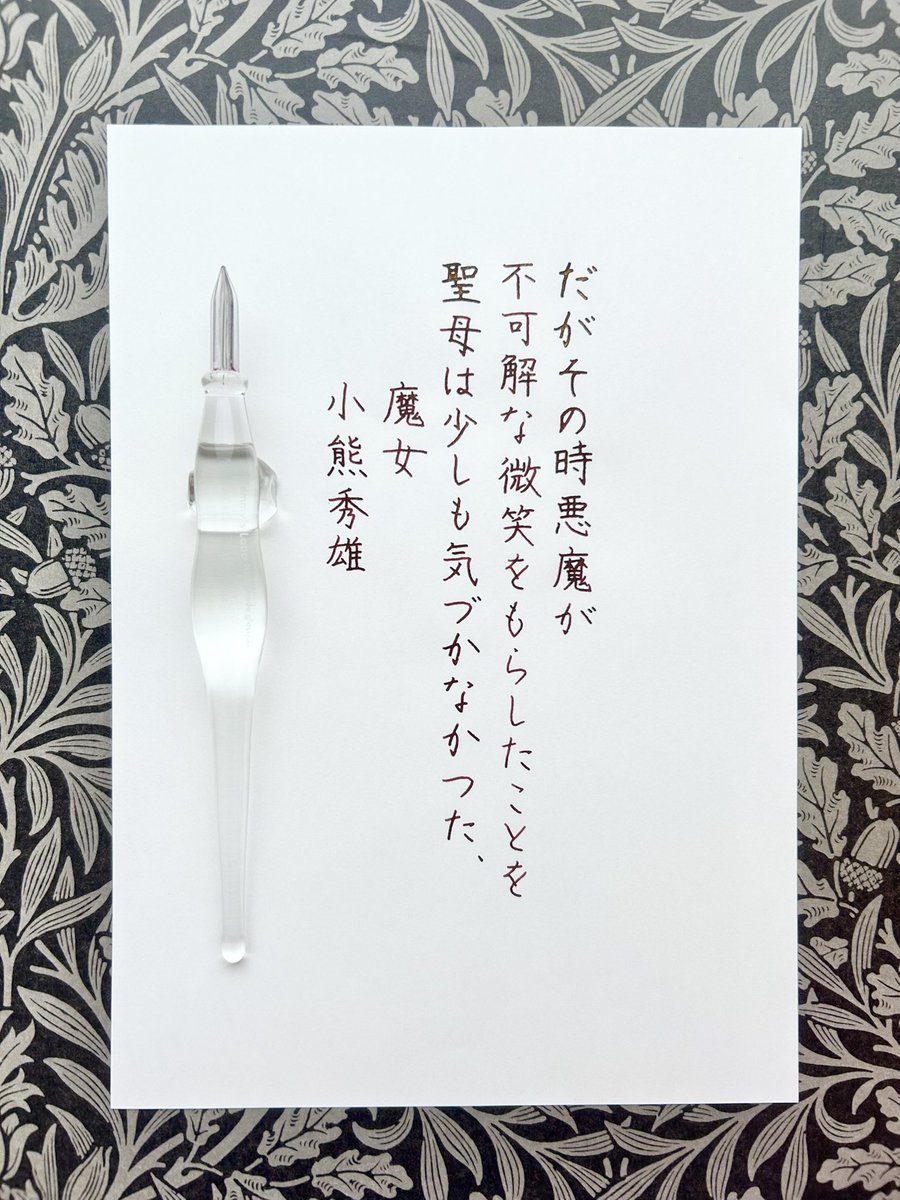 だがその時悪魔が
不可解な微笑をもらしたことを
聖母は少しも気づかなかつた、
魔女
小熊秀雄